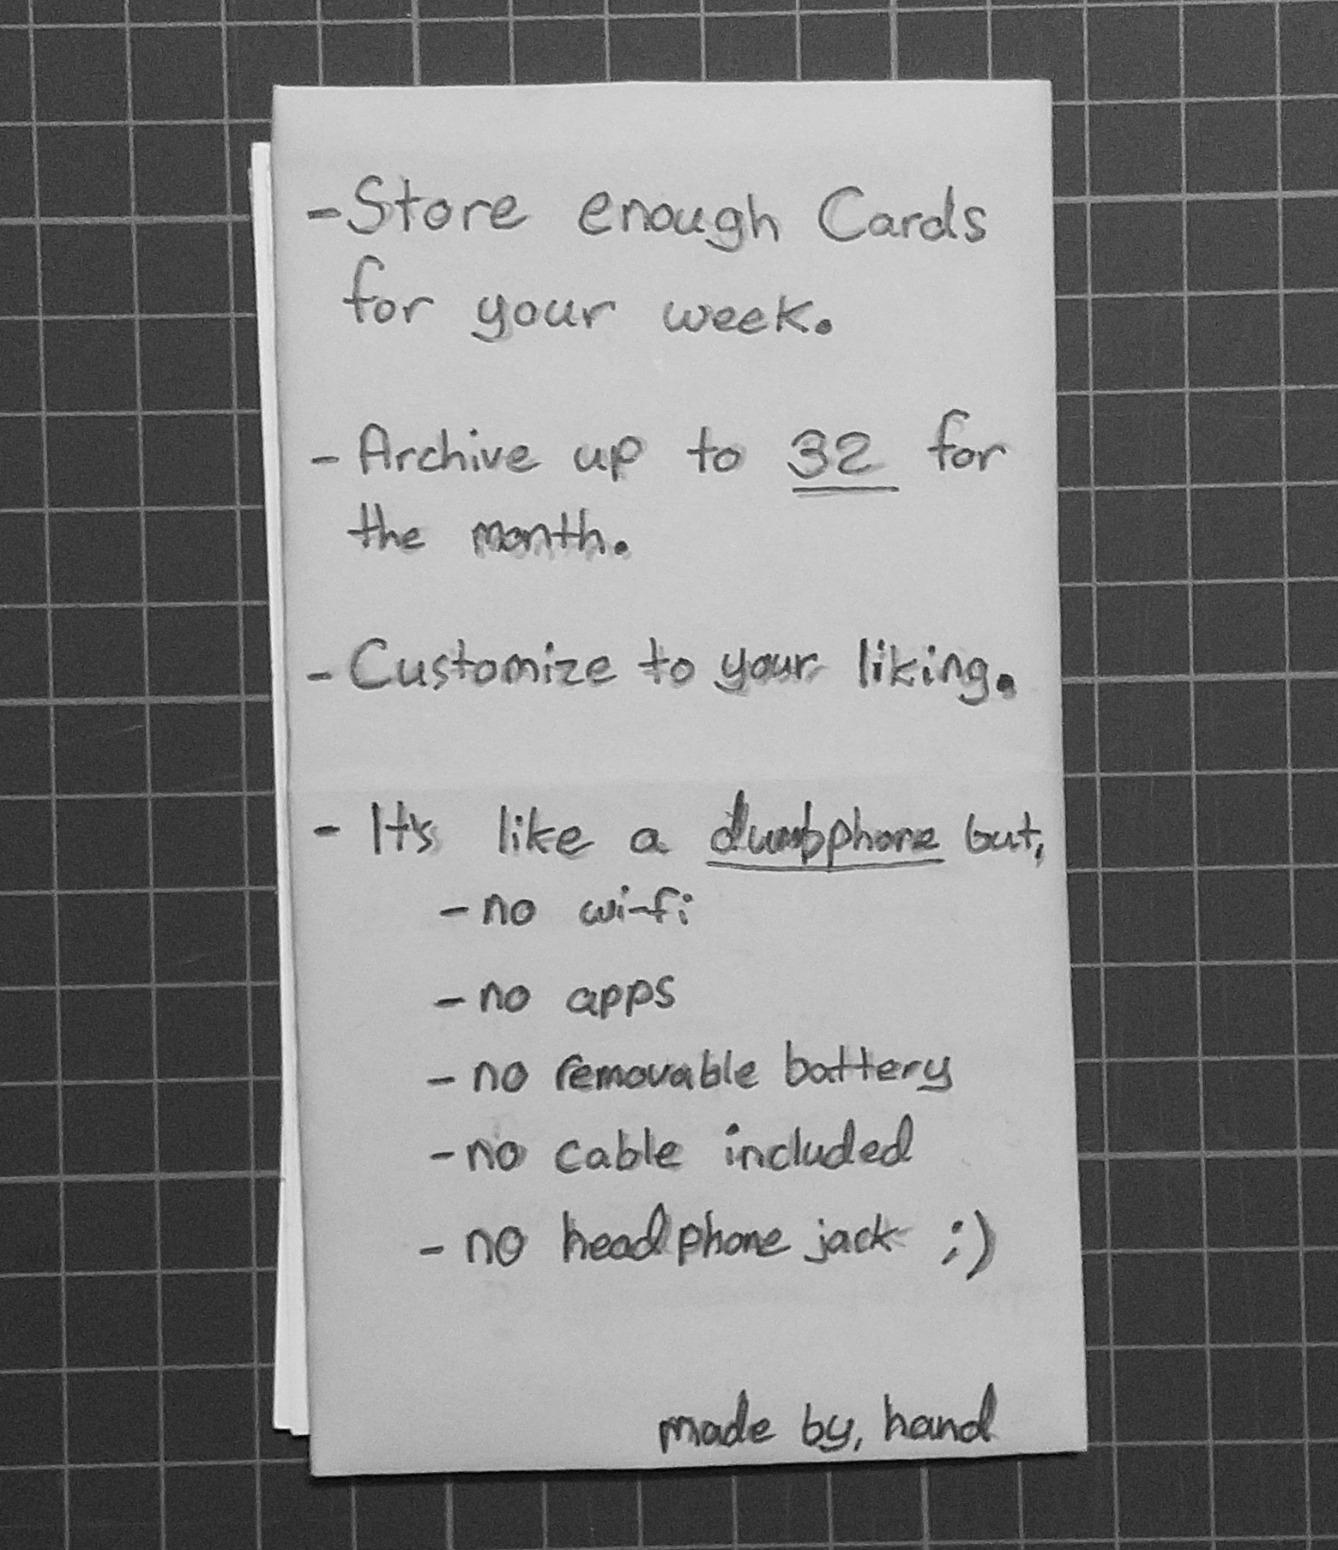 - Store enough Cards
for your week.
- Archive up to 32 for
the month.
- Customize to your liking.
- It's like a dumbphone but,
- no wi-fi
- no apps
- no removable battery
- no cable included
- no headphone jack ;)
made by, hand